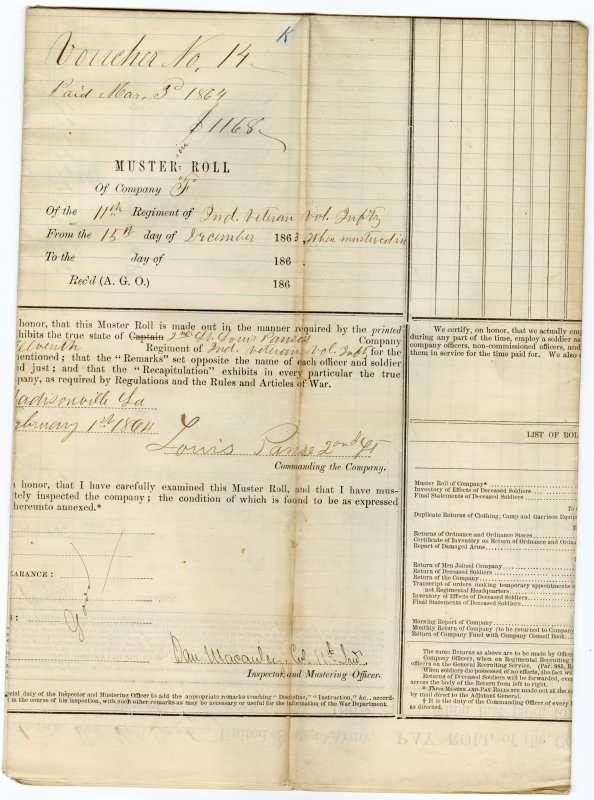 K
Voucher No. 14
Paid Mar. 3d 1864
$1168
MUSTER ROLL
Of Company "F"
Of the 11th Regiment of Ind. Veteran Vol. Inft'y
From the 15th day of December 1863, when mustered in
To the day of 186 .
Rec'd (A. G. O.) 186
honor, that this Muster Roll is made out in the manner required by the printed
hibits the true state of Captain 2nd Lt. Louis Panse's Company
Eleventh Regiment of Ind. Veteran Vol. Inft for the
entioned; that the "Remarks" set opposite the name of each officer and soldier
d just; and that the "Recapitulation" exhibits in every particular the true
pany, as required by Regulations and the Rules and Articles of War.
Madisonville La
February 1st 1864
Louis Panse 2nd Lt
Commanding the Company.
honor, that I have carefully examined this Muster Roll, and that I have mus-
tely inspected the company; the condition of which is found to be as expressed
hereunto annexed.*
EARANCE:
S:
good
Dan Macauley Col. 11th Ind.
Inspector and Mustering Officer.
cial duty of the Inspector and Mustering Officer to add the appropriate remarks touching "Discipline," "Instruction," &c., accord-
in the course of his inspection, with such other remarks as may be necessary or useful for the information of the War Department.
We certify, on honor, that we actually emp
during any part of the time, employ a soldier as
company officers, non-commissioned officers, and
them in service for the time paid for. We also
LIST OF ROL
Muster Roll of Company*
Inventory of Effects of Deceased Soldiers
Final Statements of Deceased Soldiers
Duplicate Returns of Clothing, Camp and Garrison Equip
Returns of Ordnance and Ordnance Stores
Certificate of Inventory on Return of Ordnance and Ordna
Report of Damaged Arms
Return of Men Joined Company
Return of Deceased Soldiers
Return of the Company
Transcript of orders making temporary appointments
not Regimental Headquarters
Inventory of Effects of Deceased Soldiers
Final Statements of Deceased Soldiers
Morning Report of Company
Monthly Return of Company (to be returned to Company
Return of Company Fund with Company Council Book
The same Returns as above are to be made by Office
Company Officers, when on Regimental Recruiting
officers on the General Recruiting Service. (Par. 985,
When soldiers die possessed of no effects, the fact will
Returns of Deceased Soldiers will be forwarded, over
across the body of the Return from left to right.
* These MUSTER AND PAY ROLLS are made out at the
by mail direct to the Adjutant General.
† It is the duty of the Commanding Officer of every
as directed.